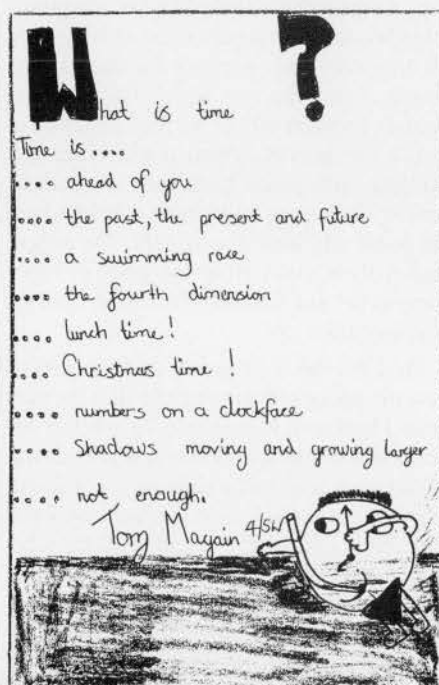 What is time ?
Time is....
.... ahead of you
.... the past, the present and future
.... a swimming race
.... the fourth dimension
.... lunch time!
.... Christmas time!
.... numbers on a clockface
.... Shadows moving and growing larger
.... not enough.
Tom Magain